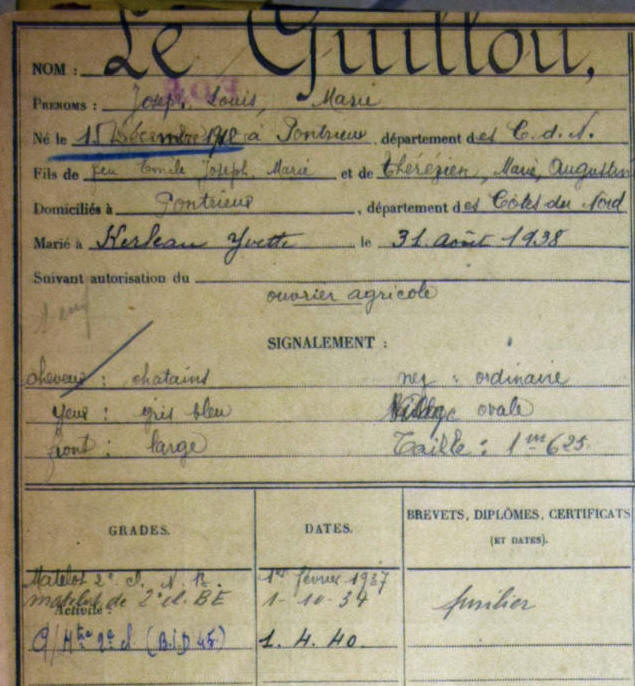 NOM : Le Guillou,
PRENOMS : Joseph, Louis, Marie
Né le 15 Décembre 1918 à Pontrieux, département des C. d. N.
Fils de feu Emile Joseph, Marie et de Thérézien, Marie, Augustin
Domiciliés à Pontrieux, département des Côtes du Nord
Marié à Kerleau Yvette le 31 août 1938
Suivant autorisation du
ouvrier agricole
SIGNALEMENT :
cheveux : chatains nez : ordinaire
yeux : gris bleu Visage ovale
front : large Taille : 1m625
GRADES. DATES. BREVETS, DIPLÔMES, CERTIFICATS
(ET DATES).
Matelot 2e cl. 1er février 1937
Activité
matelot de 2e cl. BE 1-10-37 fusilier
Q/Mtre 2e cl (B.I.D 45) 1. 4. 40.